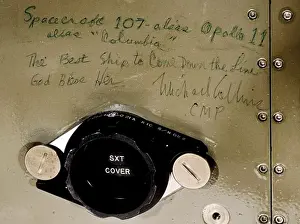 Spacecraft 107 - alias Apollo 11
alias "Columbia"
The Best Ship to Come Down the Line
God Bless Her
Michael Collins
CMP
SXT
COVER